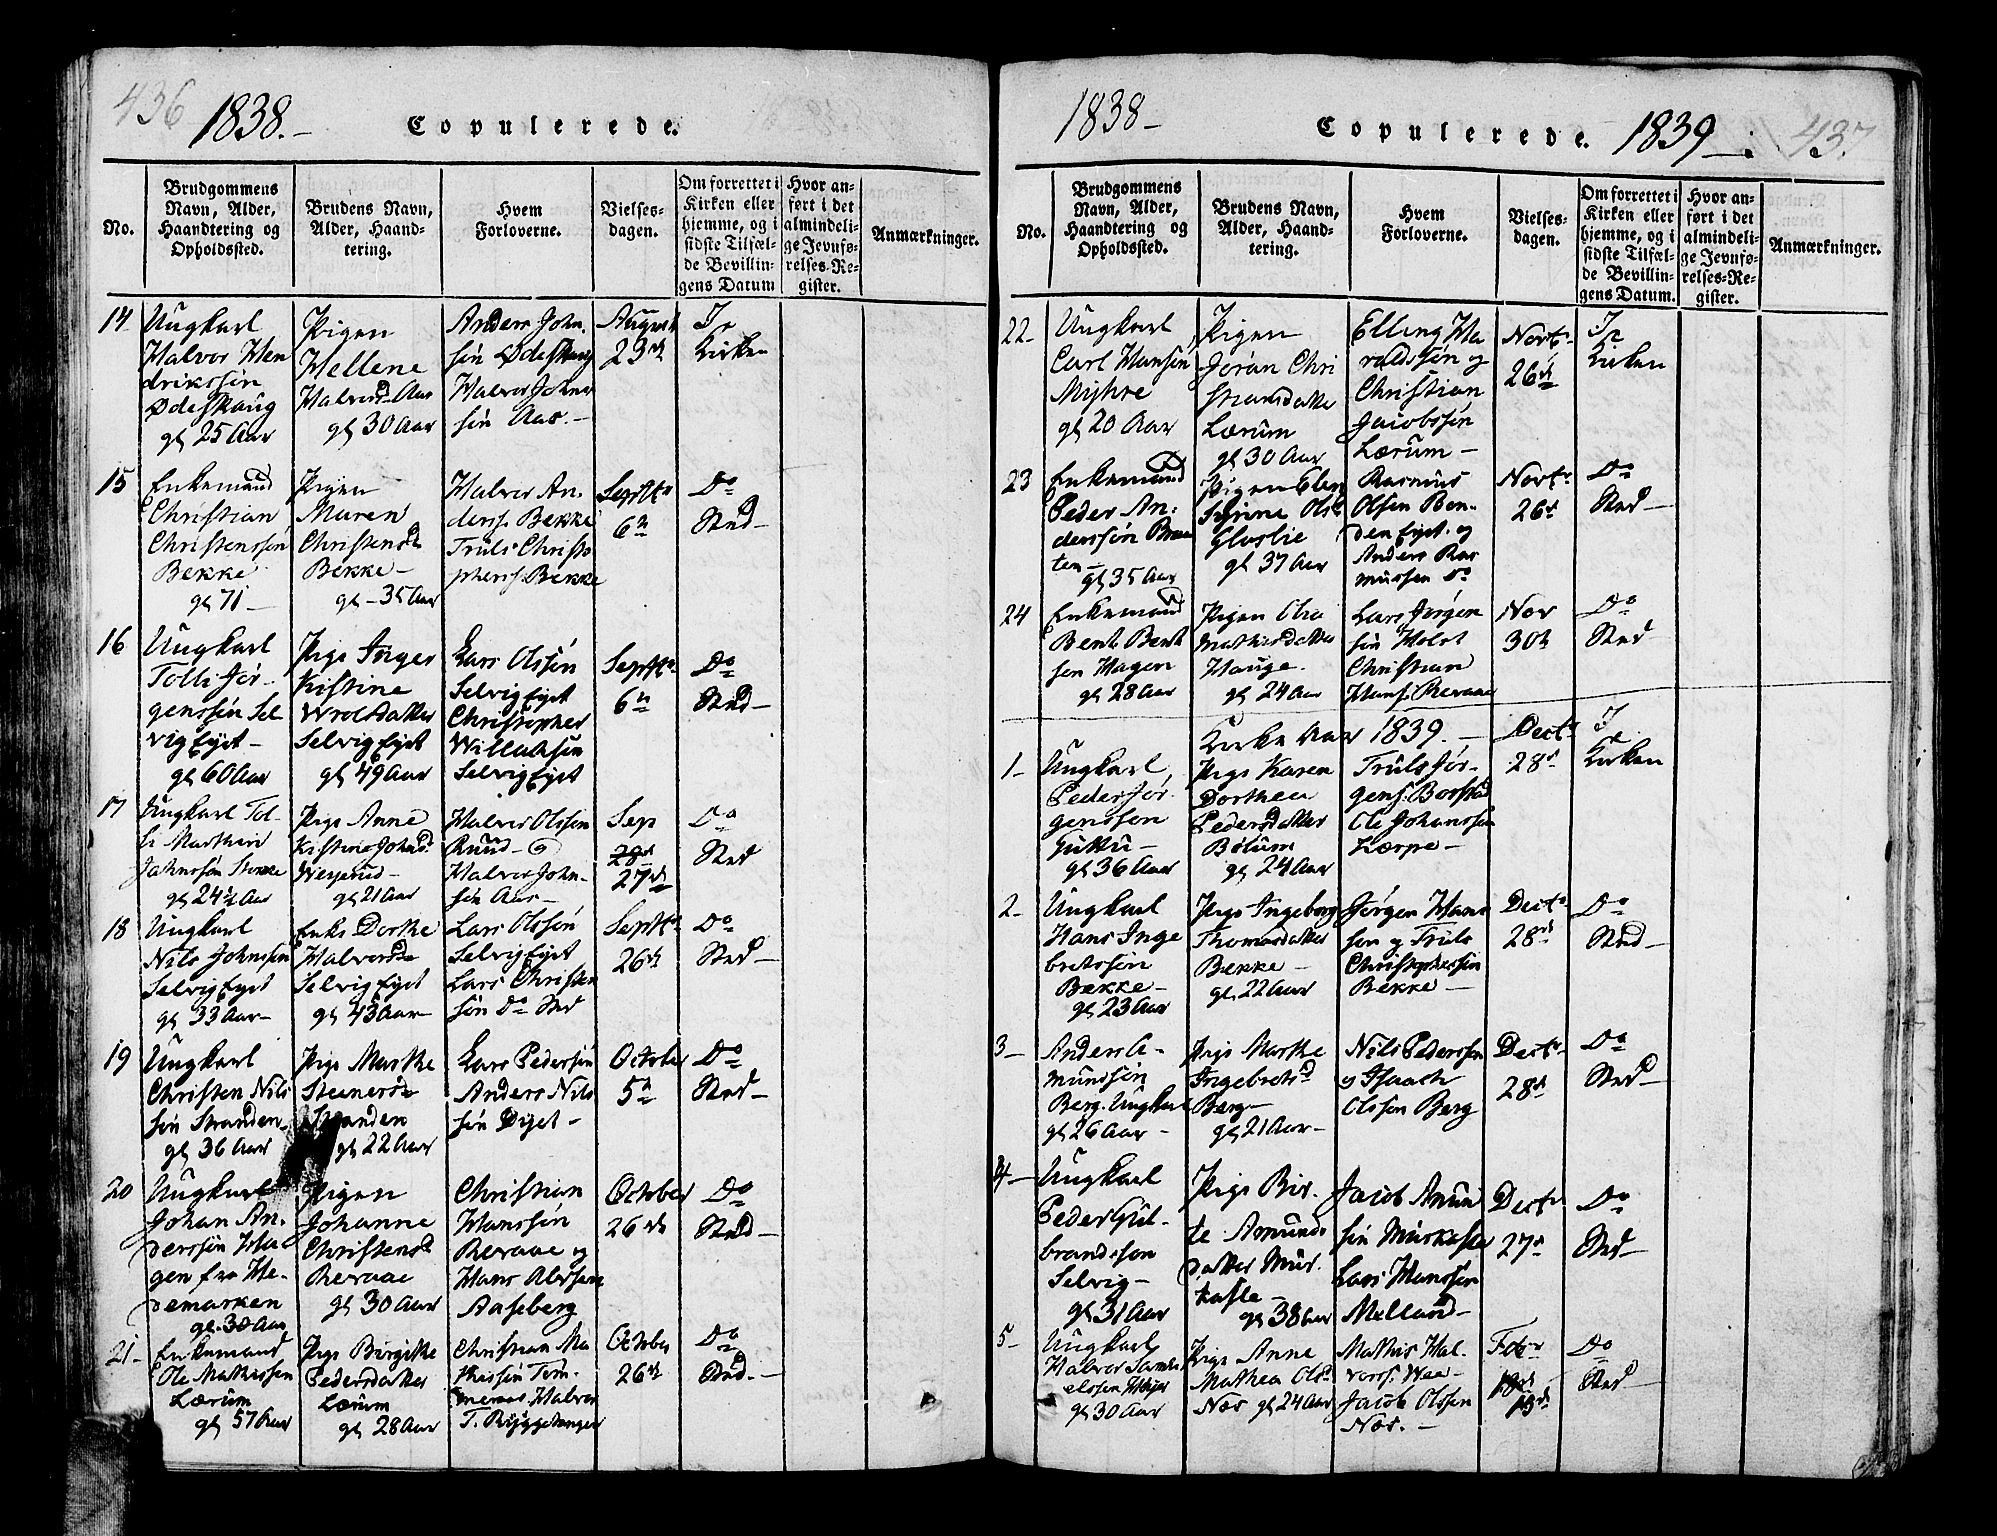 436 1838.- Copulerede.
No.
Brudgommens
Navn, Alder,
Haandtering og
Opholdssted.
Brudens Navn,
Alder, Haand-
tering.
Hvem
Forloverne.
Vielses-
dagen.
Om forrettet i
Kirken eller
hjemme, og i
sidste Tilfæl-
de Bevillin-
gens Datum
Hvor an-
ført i det
almindeli-
ge Jevnfø-
relses-Re-
gister.
Anmærkninger.
14
Ungkarl
Halvor Hen
drikssøn
Ødeskaug
gl 25 Aar
Pigen
Hellene
Halvorsd. Aas
gl 30 Aar
Anders John.
søn Ødeskaug
Halvor Johns
søn Aas.-
August
23de
I
Kirken
15
Enkemand
Christian
Christenssøn
Bekke
gl 71-
Pigen
Maren
Christensd
Bekke-
gl-35 Aar
Halvor An.
derss. Bekke
Truls Christo
phers. Bekke
Septbr
6te
Do
Sted-
16
Ungkarl
Tolli Jør-
genssøn Sel
vig Eyet-
gl 60 Aar
Pige Inger
Kistine
Wroldatter
Selvig Eyet
gl 49 Aar
Lars Olssøn
Selvig Eyet
Christopher
Selvig Eyet
Septbr
6te
Do
Sted-
17
Ungkarl Tol-
li Marthin
Johnssøn Stokke
gl 24½ Aar
Pige Anne
Kistine Johnsd
gl 21 Aar
Halvor Olssøn
Ruud-
Halvor John-
søn Aas-
Sep
28de
27de
Do
Sted
18
Ungkarl
Nils Johnssøn
Selvig Eyet
gl 33 Aar-
Enke Dorthe
Halvorsd
Selvig Eyet
gl 43 Aar-
Lars Olssøn
Selvig Eyet
Lars Christen
søn Do Sted
Septbr
26de
Do
Sted-
19
Ungkarl
Christen Nils
søn Stranden-
gl 36 Aar
Pige Marthe
Steenersd
Stranden
gl 22 Aar
Lars Pederssøn
Anders Nils
søn Diget-
October
5te
Do
Sted-
20
Ungkarl
Johan An.
derssøn Ha
gen fra He-
demarken
gl. 30 Aar
Pigen
Johanne
Christensd
Revaae
gl 30 Aar
Christian
Hanssøn
Revaae og
Hans
Aaseberg
October
26de
Do
Sted-
21-
Enkemand
Ole Mathissen
Lærum
gl 57 Aar
Pige Birgithe
Pedersdatter
Lærum
gl 28 Aar
Christian Ma
thissøn Tøm-
meraas. Halvor
T. Byggstanger
October
26de
Do
Sted.-
1838- Copulerede. 1839-. 437.
No.
Brudgommens
Navn, Alder,
Haandtering og
Opholdssted.
Brudens Navn,
Alder, Haand-
tering.
Hvem
Forloverne.
Vielses-
dagen.
Om forrettet i
Kirken eller
hjemme, og i
sidste Tilfæl-
de Bevillin-
gens Datum.
Hvor an-
ført i det
almindeli-
ge Jevnfø-
relses-Re-
gister.
Anmærkninger.
22-
Ungkarl
Carl Hansøn
Myhre
gl 20 Aar
Pigen
Joran Chri
stiansdatter
Lærum
gl 30 Aar
Elling Ha
raldssøn og
Christian
Jacobssøn
Lærum-
Novbr
26de
I
Kirken
23
Enkemand
Peder An.
derssøn Braa
ten-
gl 35 Aar
Pigen Elen
Syrine Olsd
Gloslie
gl 37 Aar
Rasmus
Olsen Bon-
den Eyet. og
Anders Ras
mussen Do
Novbr
26de
Do
Sted-
24
Enkemand
Bent Bent
sen Hagen
gl 28 Aar
Pigen Olia
Mathisdatter
Hauge.
gl 24 Aar
Lars Jørgen
søn Holst
Christian
Hans. Revaae
Nov
30te
Do
Sted
Kirke Aar 1839.-
1-
Ungkarl
Peder Jør.
genssøn
gl 36 Aar
Pige Karen
Dorthea
Pedersdatter
Bølum
gl 24 Aar
Truls Jør-
gens. Borstad
Ole Johanssen
Kærpe-
Decbr
28de
I
Kirken
2-
Ungkarl
Hans Inge
bretssøn
Bekke-
gl 23 Aar
Pige Ingeborg
Thomasdatter
Bekke-
gl. 22 Aar
Jørgen Hans
søn og Truls
Christophersøn
Bekke-
Decbr
28de
Do
Sted-
3-
Anders A-
mundsøn
Berg. Ungkarl
gl 26 Aar-
Pige Marthe
Ingebretsd
Berg-
gl 21 Aar-
Nils Pederssen
og Isaach
Olssøn Berg
Decbr
28de
Do
Sted-
4-
Ungkarl
Peder Gul-
brandssøn
Selvig-
gl 31 Aar
Pige Bir.
te Amunds
datter Mur.
kasle-
gl 38 Aar
Jacob Amun
søn Murkasle
Lars Hanssøn
Melland-
Decbr
27de
Do
Sted-
5-
Ungkarl
Halvor Samu
elssen
gl 30 Aar
Pige Anne
Mathea Olsd
Nos gl 24 Aar
Mathis Hal-
vorss.
Jacob Olssøn
Nos.-
Febr
13de
Do
Sted-